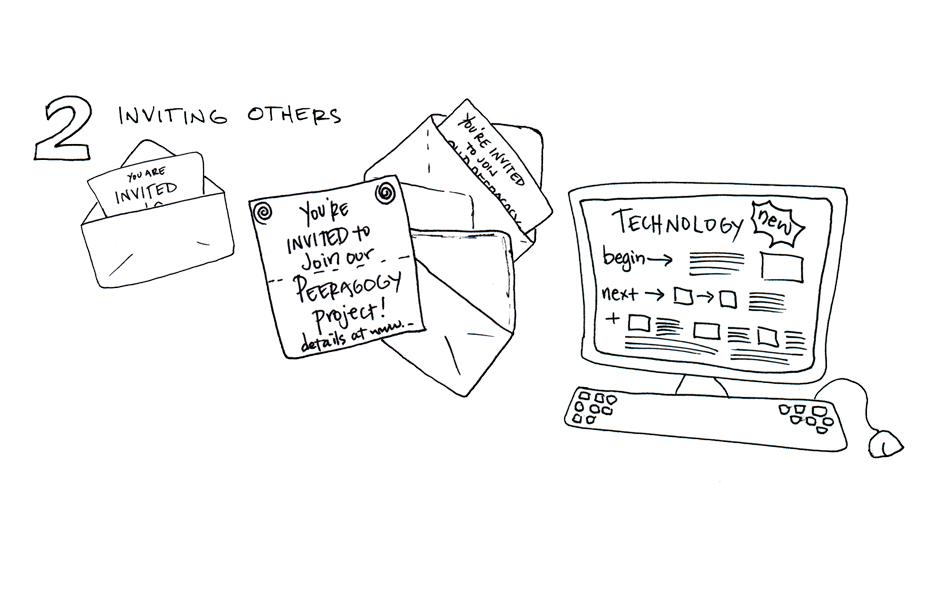 2 INVITING OTHERS
YOU ARE
INVITED
YOU'RE
INVITED to
Join our
PEERAGOGY
project!
details at www.-
YOU'RE INVITED
TO JOIN
OUR PEERAGOGY
TECHNOLOGY new
begin→
next → →
+